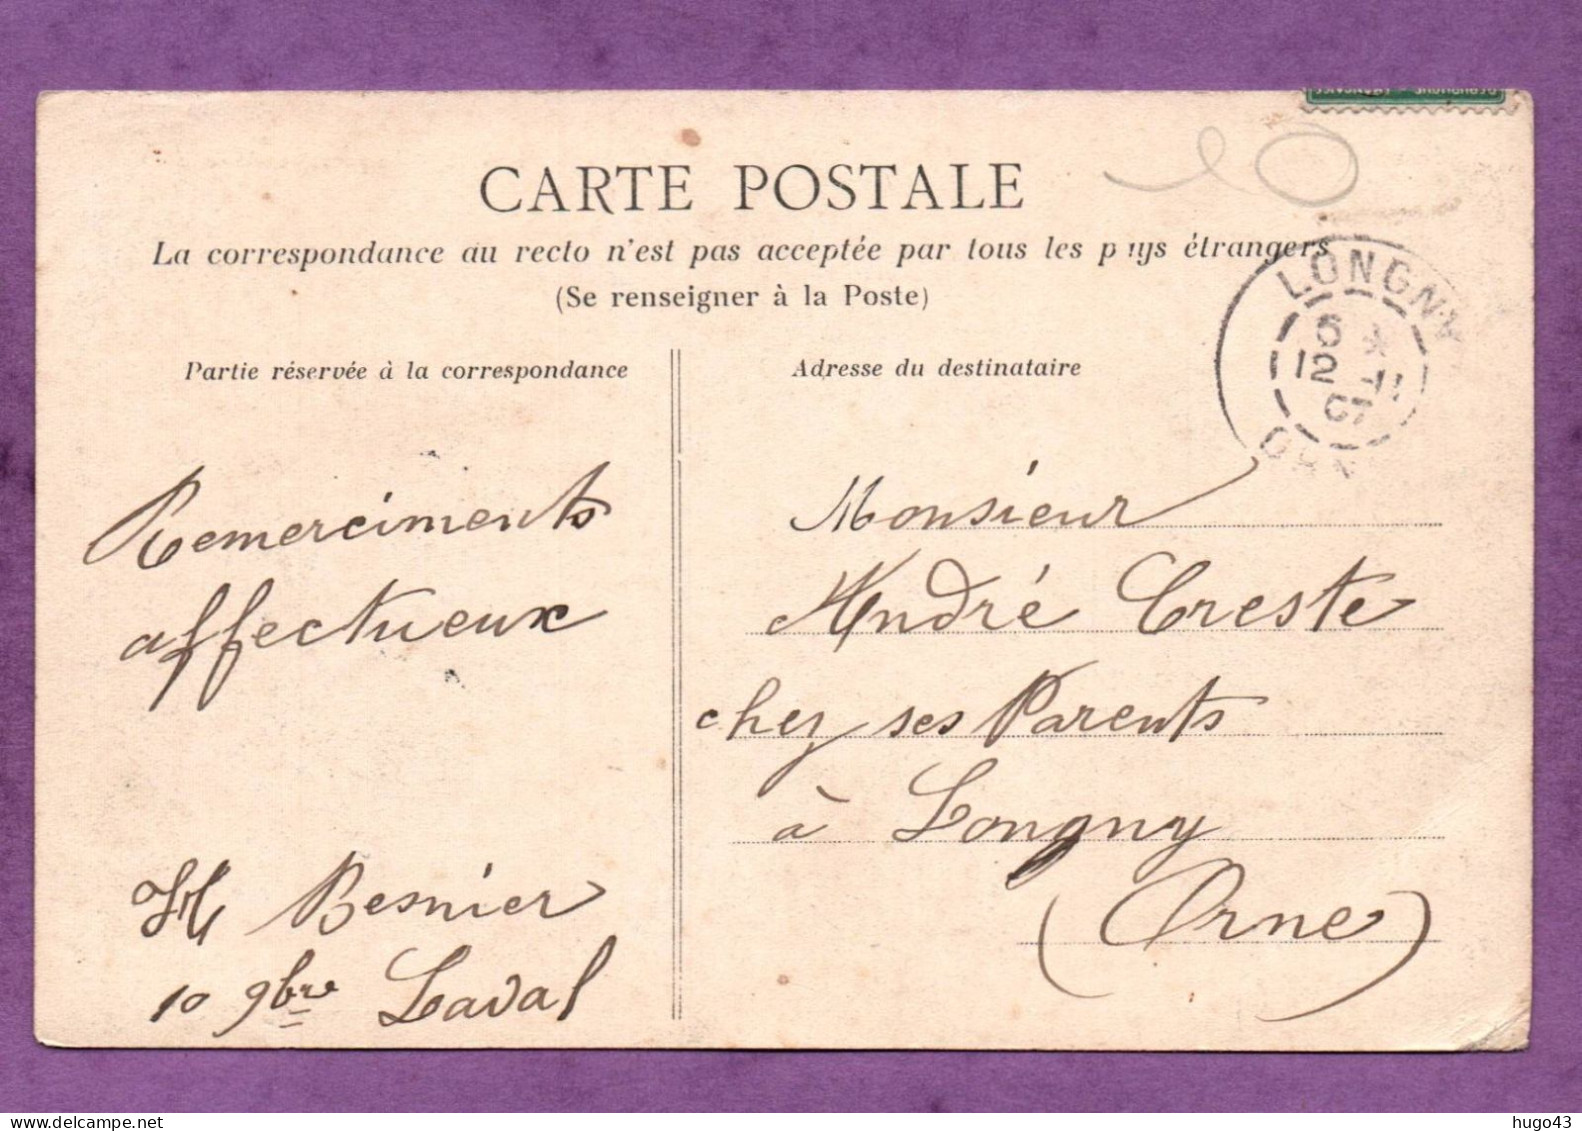 CARTE POSTALE
La correspondance au recto n'est pas acceptée par tous les pays étrangers
(Se renseigner à la Poste)
Partie réservée à la correspondance
Adresse du destinataire
LONGNY
6 *
12 -11
07
ORNE
Remerciments
affectueux
H Besnier
10 9bre Laval
Monsieur
André Creste
chez ses Parents
à Longny
(Orne)
hugo43